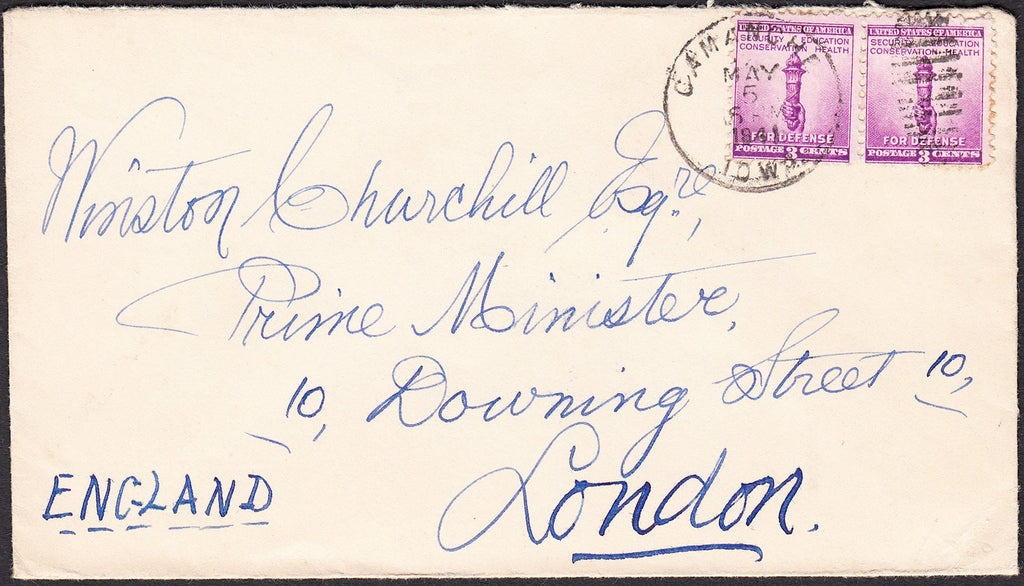 CAMANCHE
MAY
5
1941
IOWA
UNITED STATES OF AMERICA
SECURITY EDUCATION
CONSERVATION HEALTH
FOR DEFENSE
POSTAGE 3 CENTS
UNITED STATES OF AMERICA
SECURITY EDUCATION
CONSERVATION HEALTH
FOR DEFENSE
POSTAGE 3 CENTS
Winston Churchill Esqre,
Prime Minister,
10, Downing Street 10,
London.
ENGLAND